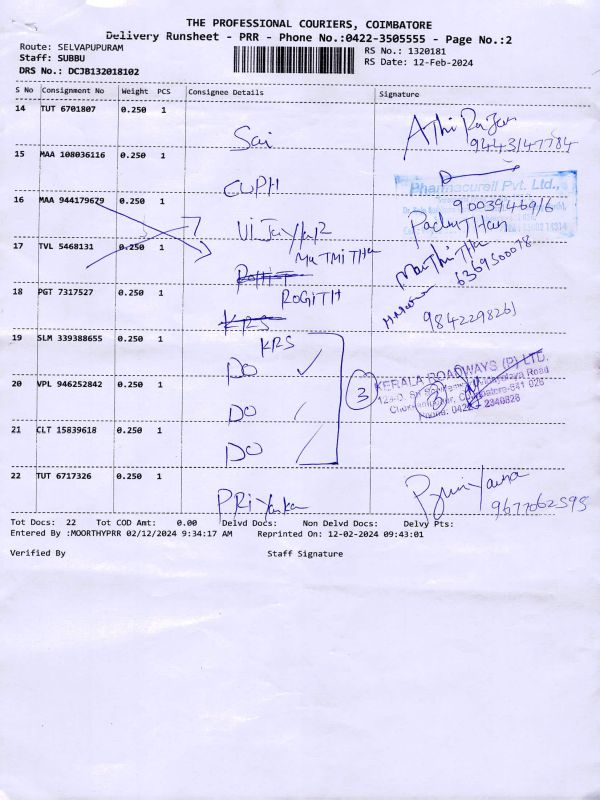 THE PROFESSIONAL COURIERS, COIMBATORE
Delivery Runsheet - PRR - Phone No.:0422-3505555 - Page No.:2
Route: SELVAPUPURAM
RS No.: 1320181
Staff: SUBBU
RS Date: 12-Feb-2024
DRS No.: DCJB132018102
S No Consignment No Weight PCS Consignee Details Signature
14 TUT 6701807 0.250 1
Sai
9443147784
15 MAA 108036116 0.250 1
CUPH
Pharmacureil Pvt. Ltd.,
16 MAA 944179679 0.250 1
9003946916
17 TVL 5468131 0.250 1
MUTMITHA
6369500078
18 PGT 7317527 0.250 1
ROGITH
9842298261
KRS
19 SLM 339388655 0.250 1
KRS
DO
3
KERALA ROADWAYS (P) LTD.
20 VPL 946252842 0.250 1
DO
21 CLT 15839618 0.250 1
DO
22 TUT 6717326 0.250 1
PRiyanka
9677062595
Tot Docs: 22 Tot COD Amt: 0.00 Delvd Docs: Non Delvd Docs: Delvy Pts:
Entered By :MOORTHYPRR 02/12/2024 9:34:17 AM Reprinted On: 12-02-2024 09:43:01
Verified By Staff Signature